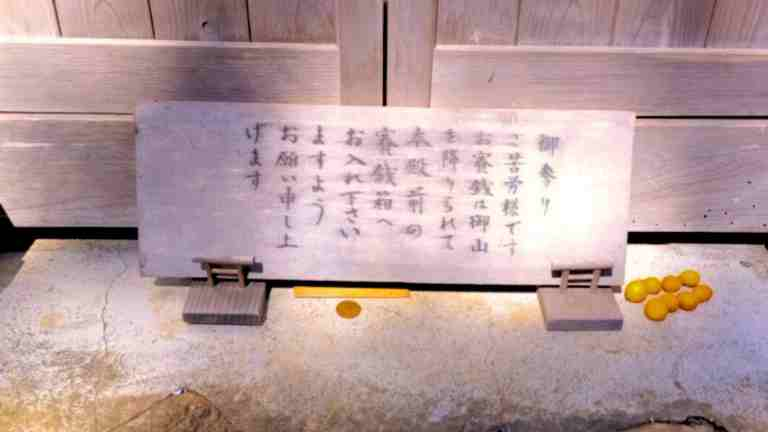 御参り
ご苦労様です
お賽銭は御山
を降りられて
本殿前の
賽銭箱へ
お入れ下さい
ますよう
お願い申し上
げます